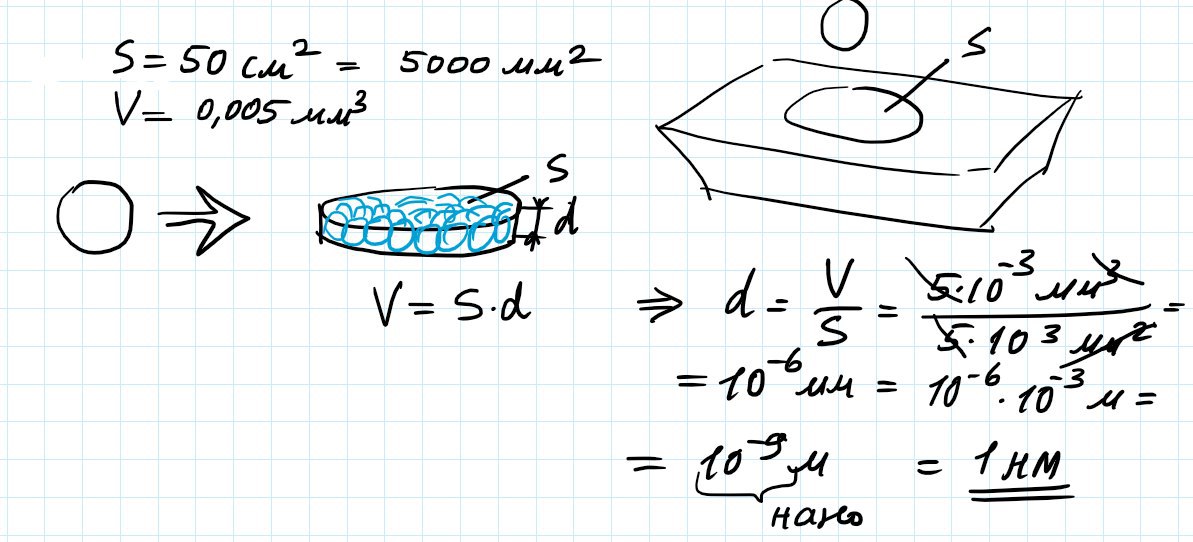 S = 50 см² = 5000 мм²
V = 0,005 мм³
S
S
d
V = S·d
⇒ d = V/S = 5·10⁻³ мм³ / 5·10³ мм² =
= 10⁻⁶ мм = 10⁻⁶·10⁻³ м =
= 10⁻⁹ м = 1 нм
нано